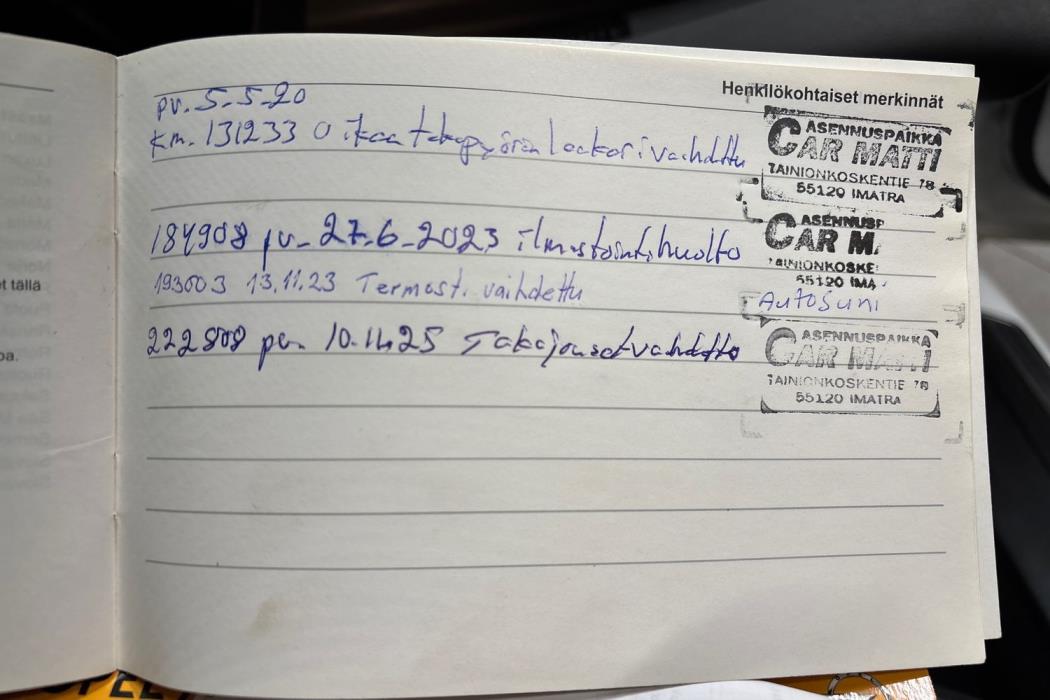 Henkilökohtaiset merkinnät
pv. 5-5-20
km. 131233 Oikea takapyörän laakeri vaihdettu
ASENNUSPAIKKA
CAR MATTI
TAINIONKOSKENTIE 78
55120 IMATRA
184908 pv. 27.6.2023 ilmastointihuolto
ASENNUSP
CAR M
TAINIONKOSKE
55120 IMA
193003 13.11.23 Termost. vaihdettu
Autosuni
222808 pv. 10.11.25 Takajouset vaihdettu
ASENNUSPAIKKA
CAR MATTI
TAINIONKOSKENTIE 78
55120 IMATRA
t tällä
oa.
OPEL